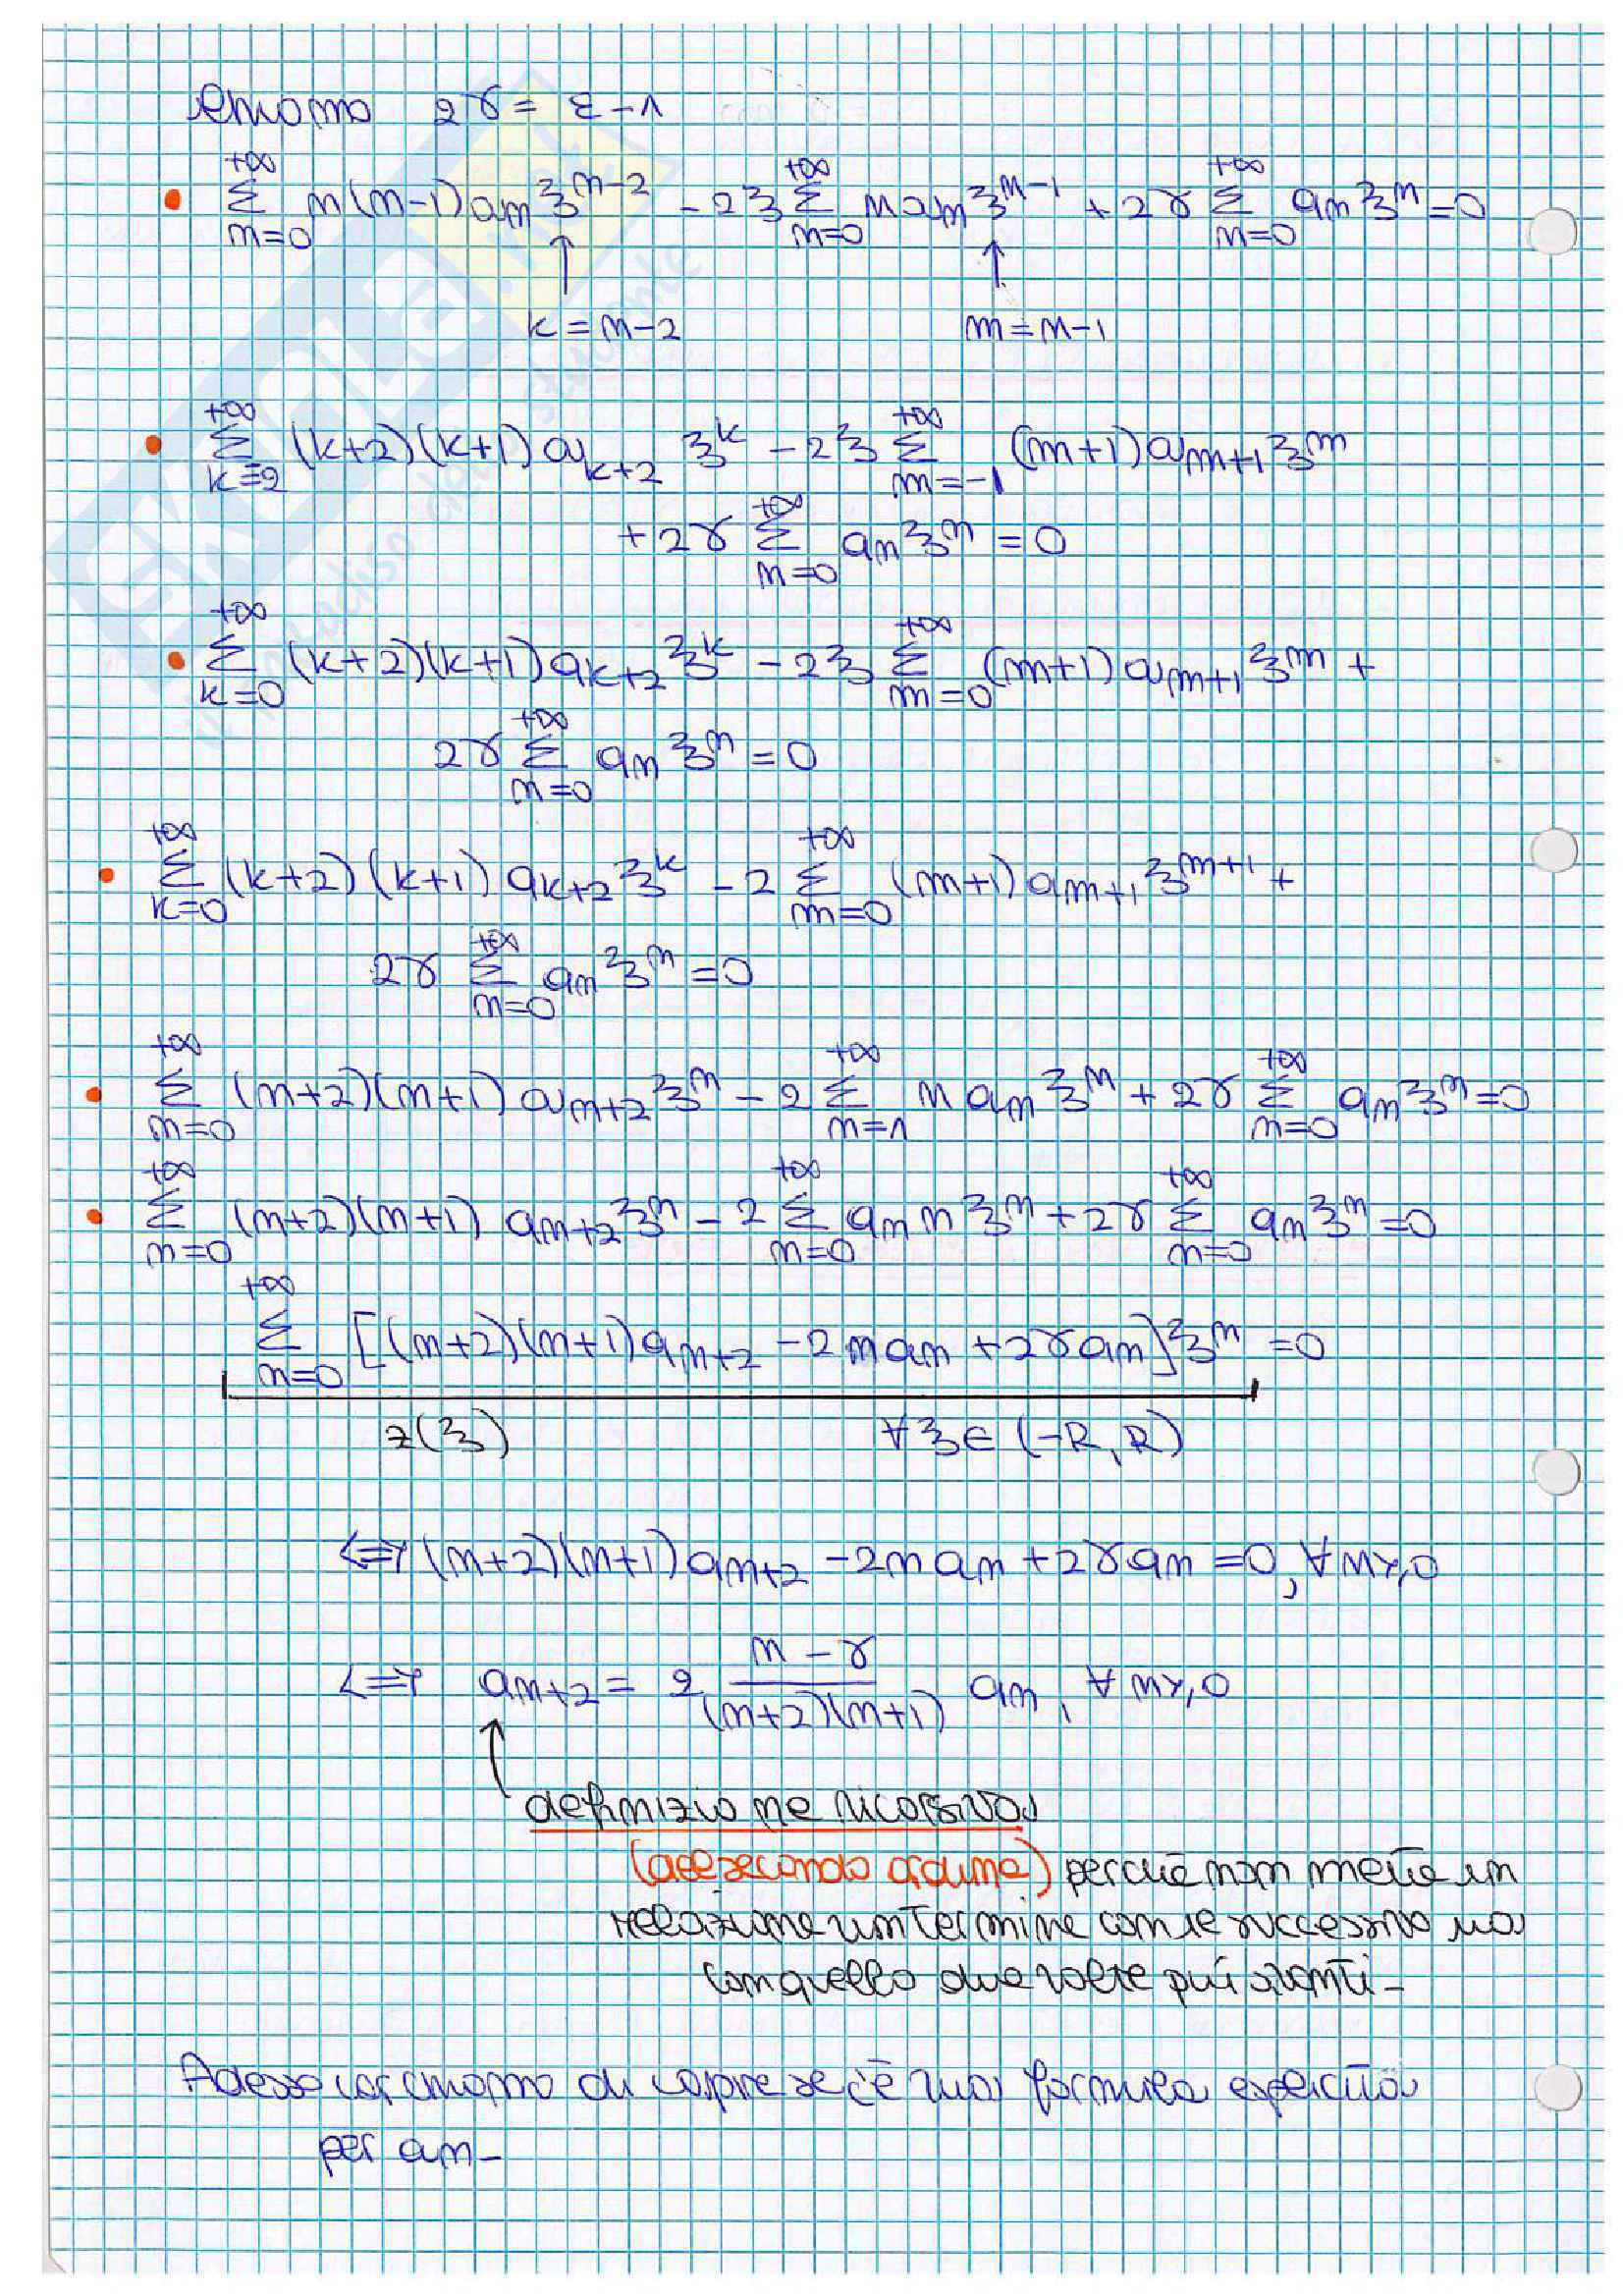 2γ = ε-1
• Σ_{n=0}^{+∞} n(n-1) a_n ξ^{n-2} - 2ξ Σ_{n=0}^{+∞} n a_n ξ^{n-1} + 2γ Σ_{n=0}^{+∞} a_n ξ^n = 0
↑ ↑
k = n-2 m = n-1
• Σ_{k=2}^{+∞} (k+2)(k+1) a_{k+2} ξ^k - 2ξ Σ_{m=-1}^{+∞} (m+1) a_{m+1} ξ^m
+ 2γ Σ_{n=0}^{+∞} a_n ξ^n = 0
• Σ_{k=0}^{+∞} (k+2)(k+1) a_{k+2} ξ^k - 2ξ Σ_{m=0}^{+∞} (m+1) a_{m+1} ξ^m +
2γ Σ_{n=0}^{+∞} a_n ξ^n = 0
• Σ_{k=0}^{+∞} (k+2)(k+1) a_{k+2} ξ^k - 2 Σ_{m=0}^{+∞} (m+1) a_{m+1} ξ^{m+1} +
2γ Σ_{n=0}^{+∞} a_n ξ^n = 0
• Σ_{n=0}^{+∞} (n+2)(n+1) a_{n+2} ξ^n - 2 Σ_{n=1}^{+∞} n a_n ξ^n + 2γ Σ_{n=0}^{+∞} a_n ξ^n = 0
• Σ_{n=0}^{+∞} (n+2)(n+1) a_{n+2} ξ^n - 2 Σ_{n=0}^{+∞} a_n n ξ^n + 2γ Σ_{n=0}^{+∞} a_n ξ^n = 0
Σ_{n=0}^{+∞} [(n+2)(n+1) a_{n+2} - 2n a_n + 2γ a_n] ξ^n = 0
z(ξ) ∀ ξ ∈ (-R, R)
⟺ (n+2)(n+1) a_{n+2} - 2n a_n + 2γ a_n = 0, ∀ n ≥ 0
⟺ a_{n+2} = 2 \frac{n-γ}{(n+2)(n+1)} a_n, ∀ n ≥ 0
definizione ricorsiva
(del secondo ordine) perché non mette in
relazione un termine con il successivo ma
con quello due volte più avanti-
Adesso cerchiamo di capire se c'è una formula esplicita
per a_n-